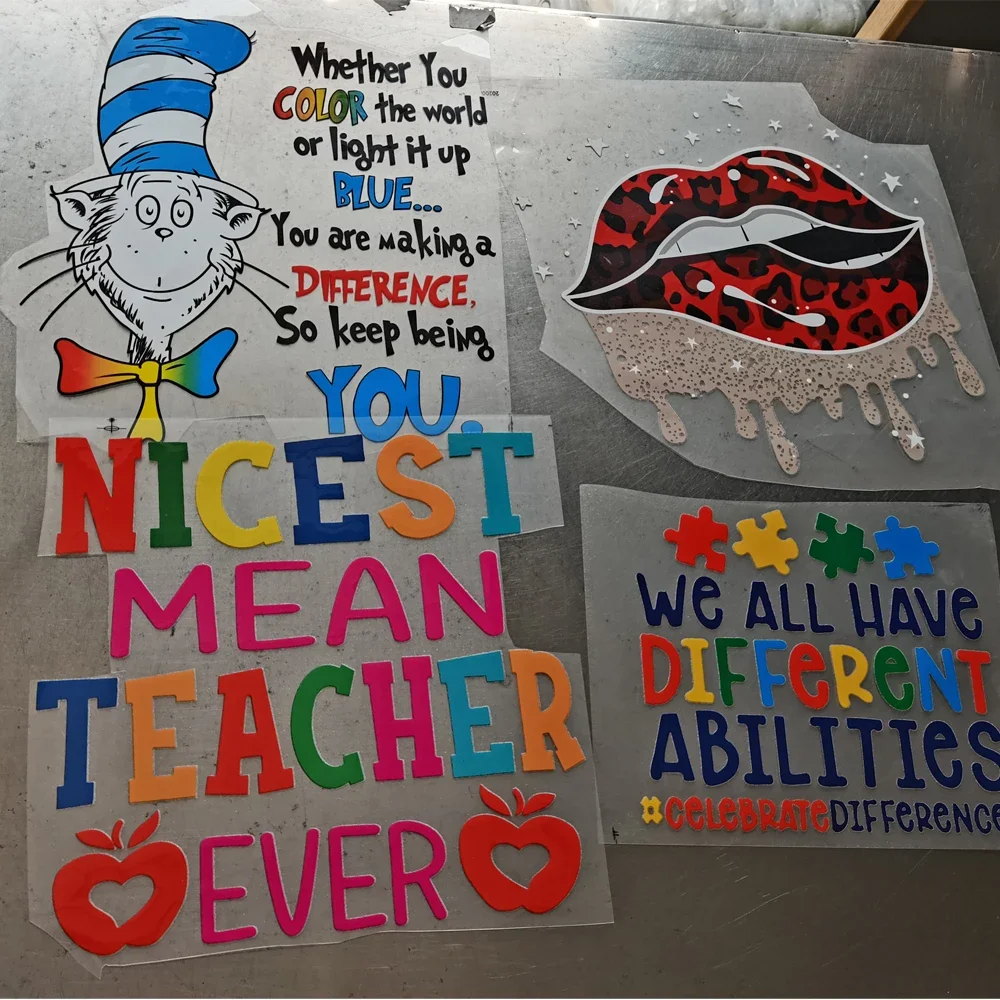 Whether You
COLOR the world
or light it up
BLUE...
You are making a
DIFFERENCE,
So keep being
YOU.
NICEST
MEAN
TEACHER
EVER
We ALL HAVE
DIFFeReNT
ABILITIeS
#CeLeBRATeDIFFeReNCe